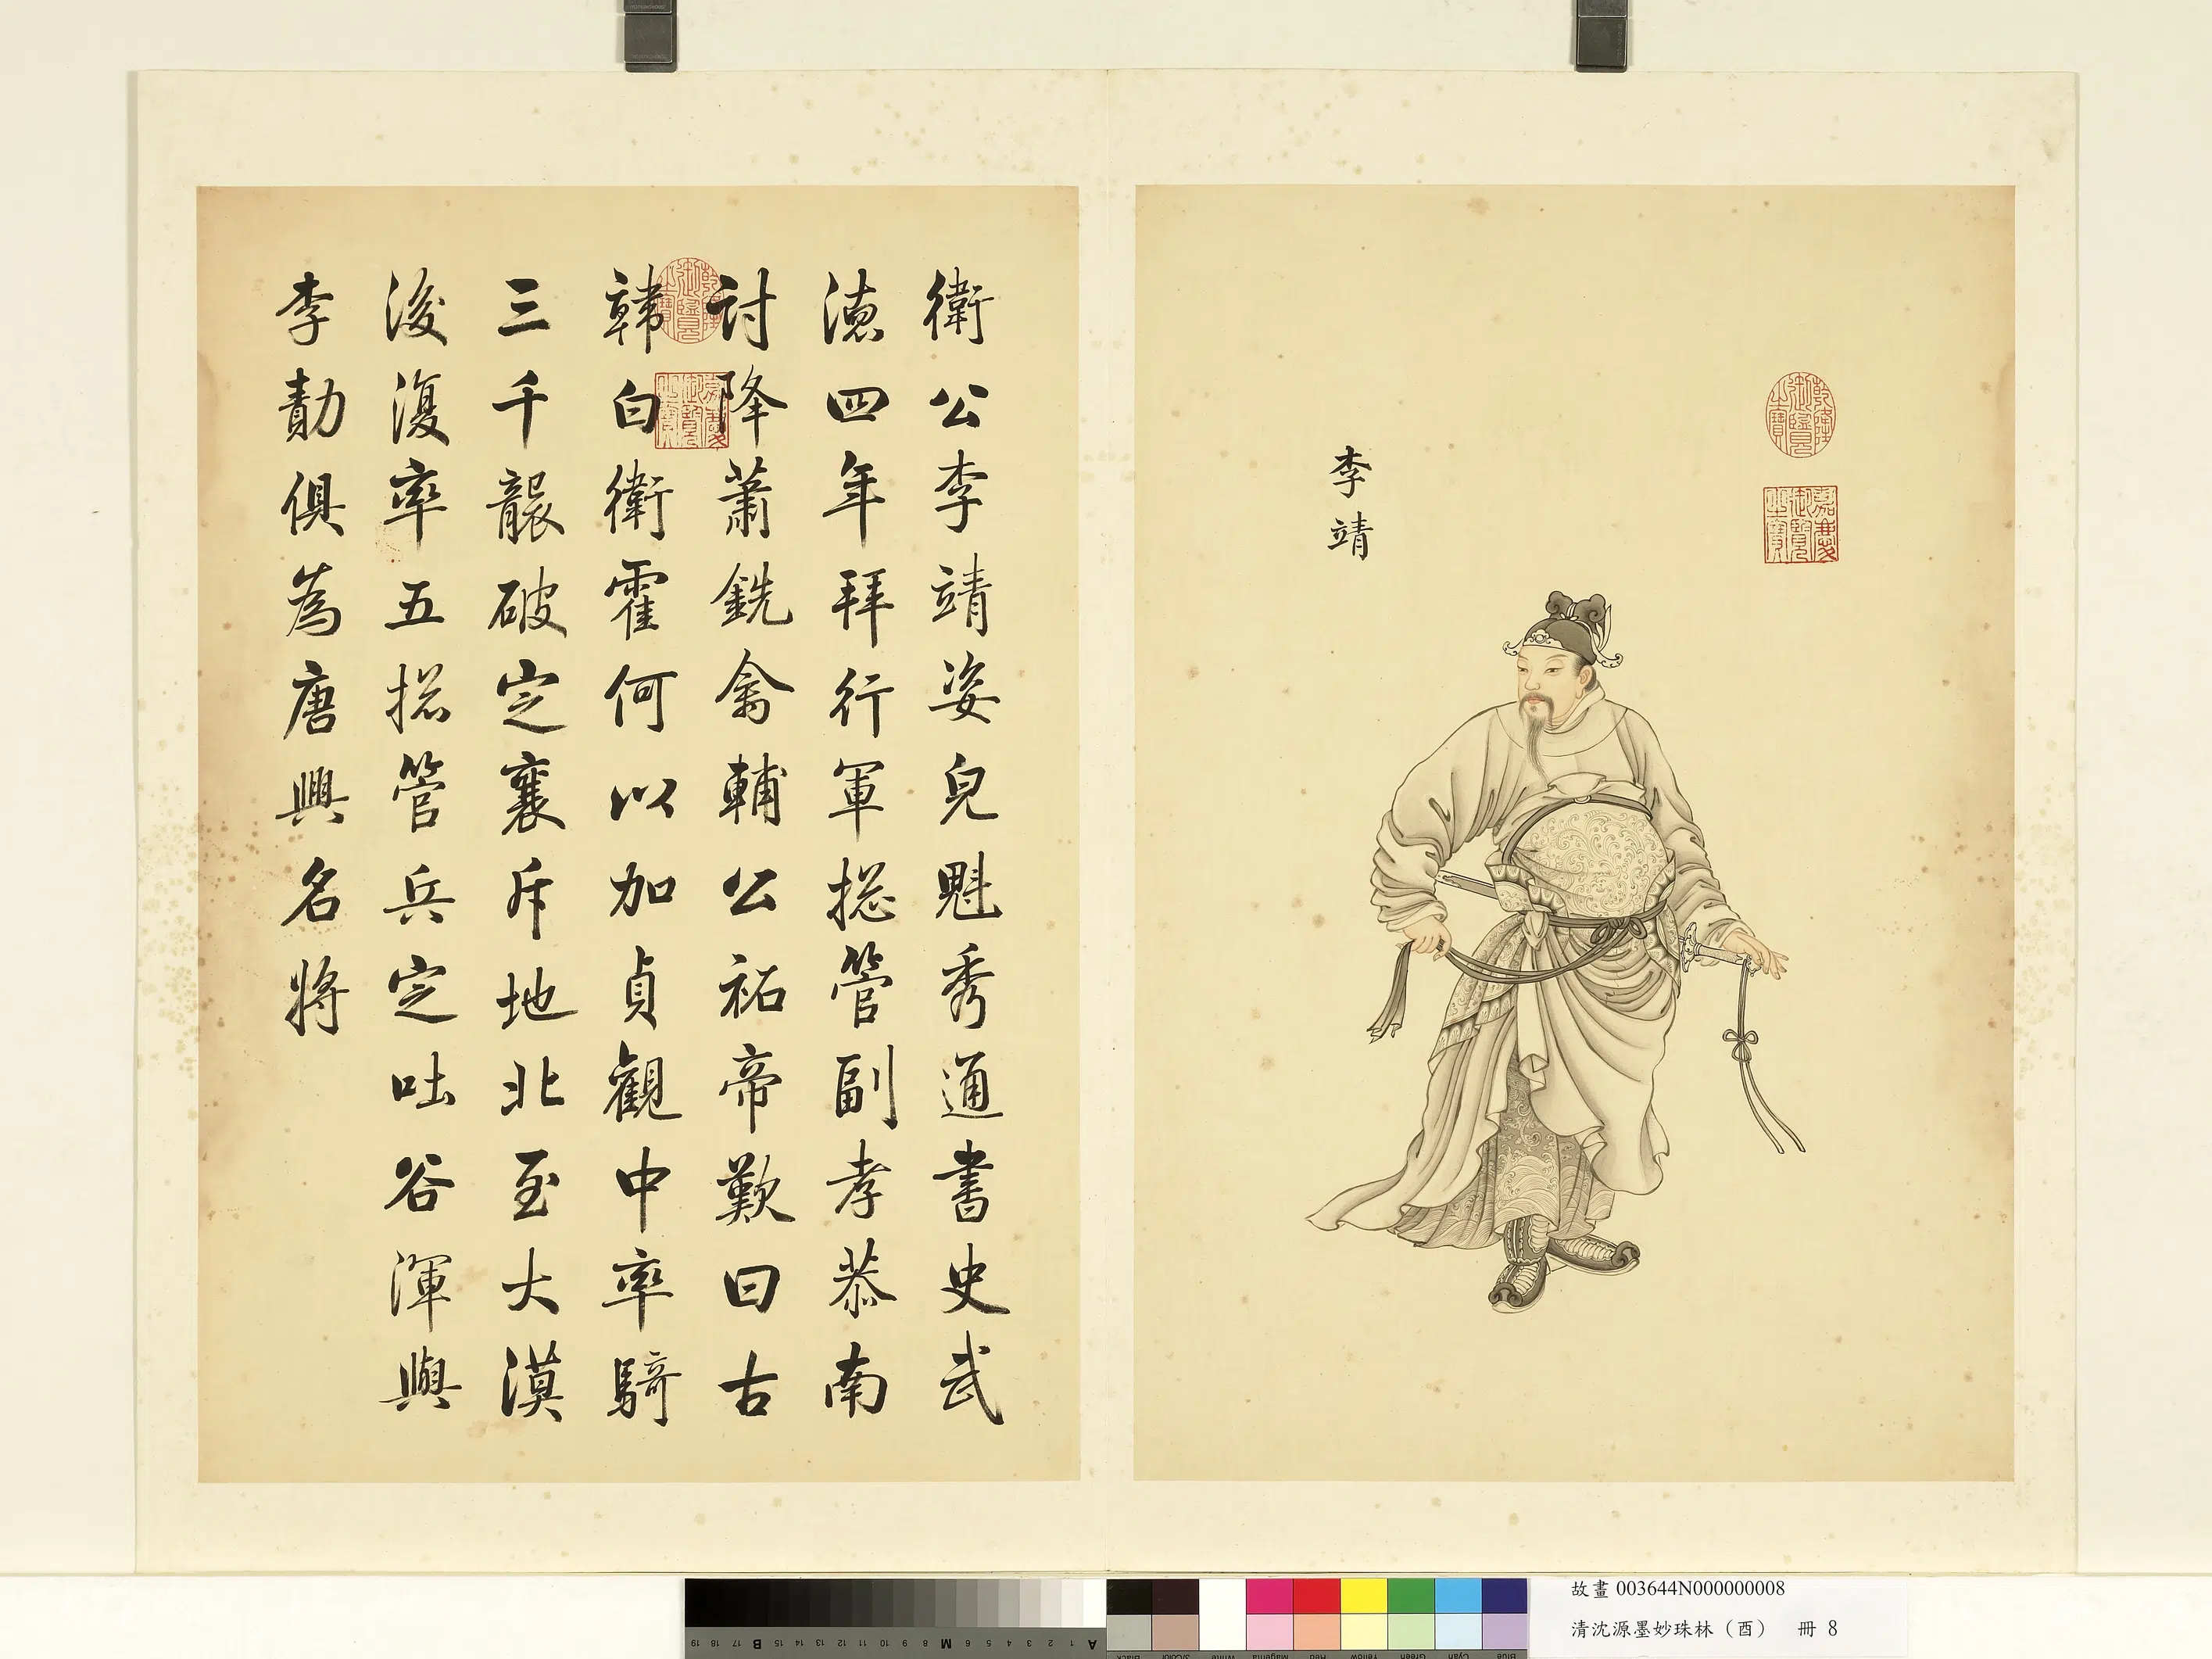 李靖
乾隆御覽之寶
嘉慶御覽之寶
衛公李靖姿皃魁秀通書史武
徳四年拜行軍揔管副孝恭南
討降蕭銑禽輔公祏帝歎曰古
韓白衛霍何以加貞觀中率騎
三千襲破定襄斥地北至大漠
後復率五揔管兵定吐谷渾與
李勣俱為唐興名將
乾隆御覽之寶
嘉慶御覽之寶
故畫 003644N000000008
清沈源墨妙珠林（酉） 冊 8
19 18 17 B 15 14 13 12 11 10 9 8 M 6 5 4 3 2 1 A
Black 3/Color Magenta Red Yellow Green Cyan Blue